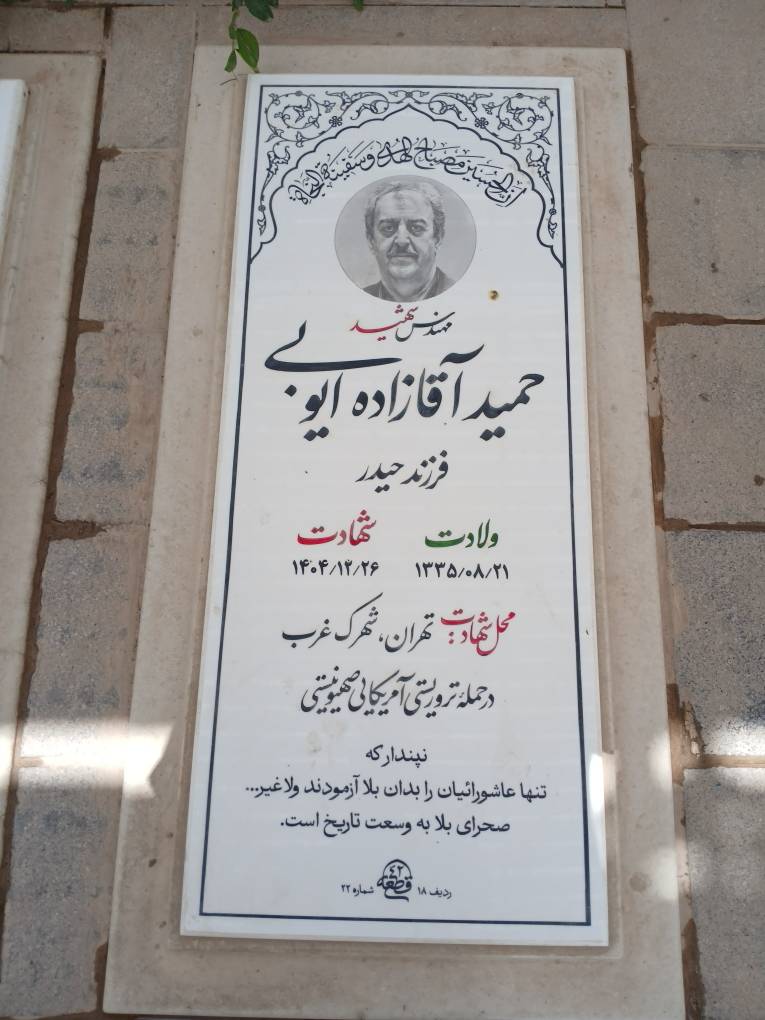 ان الحسین مصباح الهدی و سفینة النجاة
مهندس شهید
حمید آقازاده ایوبی
فرزند حیدر
ولادت شهادت
۱۳۳۵/۰۸/۲۱ ۱۴۰۴/۱۲/۲۶
محل شهادت: تهران، شهرک غرب
در حملهٔ تروریستی آمریکایی صهیونیستی
نپندار که
تنها عاشورائیان را بدان بلا آزمودند ولاغیر...
صحرای بلا به وسعت تاریخ است.
ردیف ۱۸ قطعه ۴۲ شماره ۲۲